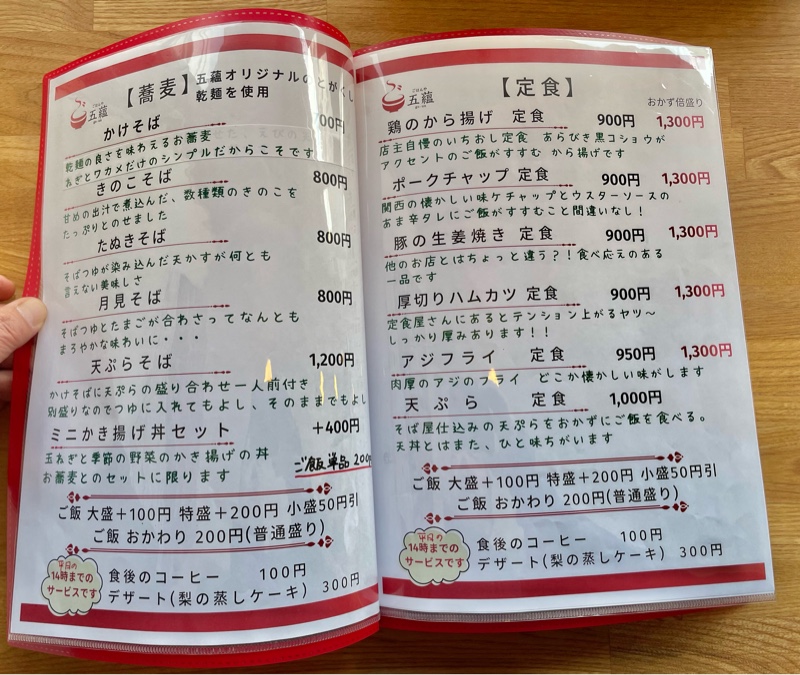 五蘊
【蕎麦】
五蘊オリジナルのとがくし
乾麺を使用
かけそば 700円
乾麺の良さを味わえるお蕎麦
ねぎとワカメだけのシンプルだからこそです
きのこそば 800円
甘めの出汁で煮込んだ、数種類のきのこを
たっぷりとのせました
たぬきそば 800円
そばつゆが染み込んだ天かすが何とも
言えない美味しさ
月見そば 800円
そばつゆとたまごが合わさってなんとも
まろやかな味わいに・・・
天ぷらそば 1,200円
かけそばに天ぷらの盛り合わせ一人前付き
別盛りなのでつゆに入れてもよし、そのままでもよし
ミニかき揚げ丼セット +400円
玉ねぎと季節の野菜のかき揚げの丼
お蕎麦とのセットに限ります
ご飯単品 200円
ご飯 大盛+100円 特盛+200円 小盛50円引
ご飯 おかわり 200円(普通盛り)
平日の
14時までの
サービスです
食後のコーヒー 100円
デザート(梨の蒸しケーキ) 300円
五蘊
【定食】
おかず倍盛り
鶏のから揚げ 定食 900円 1,300円
店主自慢のいちおし定食 あらびき黒コショウが
アクセントのご飯がすすむ から揚げです
ポークチャップ 定食 900円 1,300円
関西の懐かしい味ケチャップとウスターソースの
あま辛タレにご飯がすすむこと間違いなし!
豚の生姜焼き 定食 900円 1,300円
他のお店とはちょっと違う?!食べ応えのある
一品です
厚切りハムカツ 定食 900円 1,300円
定食屋さんにあるとテンション上がるヤツ~
しっかり厚みあります!!
アジフライ 定食 950円 1,300円
肉厚のアジのフライ どこか懐かしい味がします
天ぷら 定食 1,000円
そば屋仕込みの天ぷらをおかずにご飯を食べる。
天丼とはまた、ひと味ちがいます
ご飯 大盛+100円 特盛+200円 小盛50円引
ご飯 おかわり 200円(普通盛り)
平日の
14時までの
サービスです
食後のコーヒー 100円
デザート(梨の蒸しケーキ) 300円